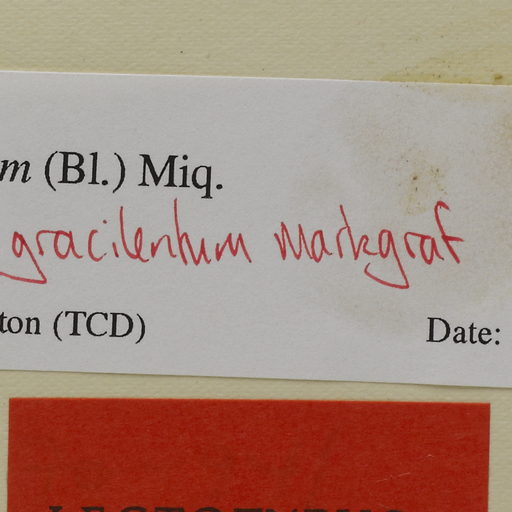 m (Bl.) Miq.
gracilentum Markgraf
ton (TCD) Date: